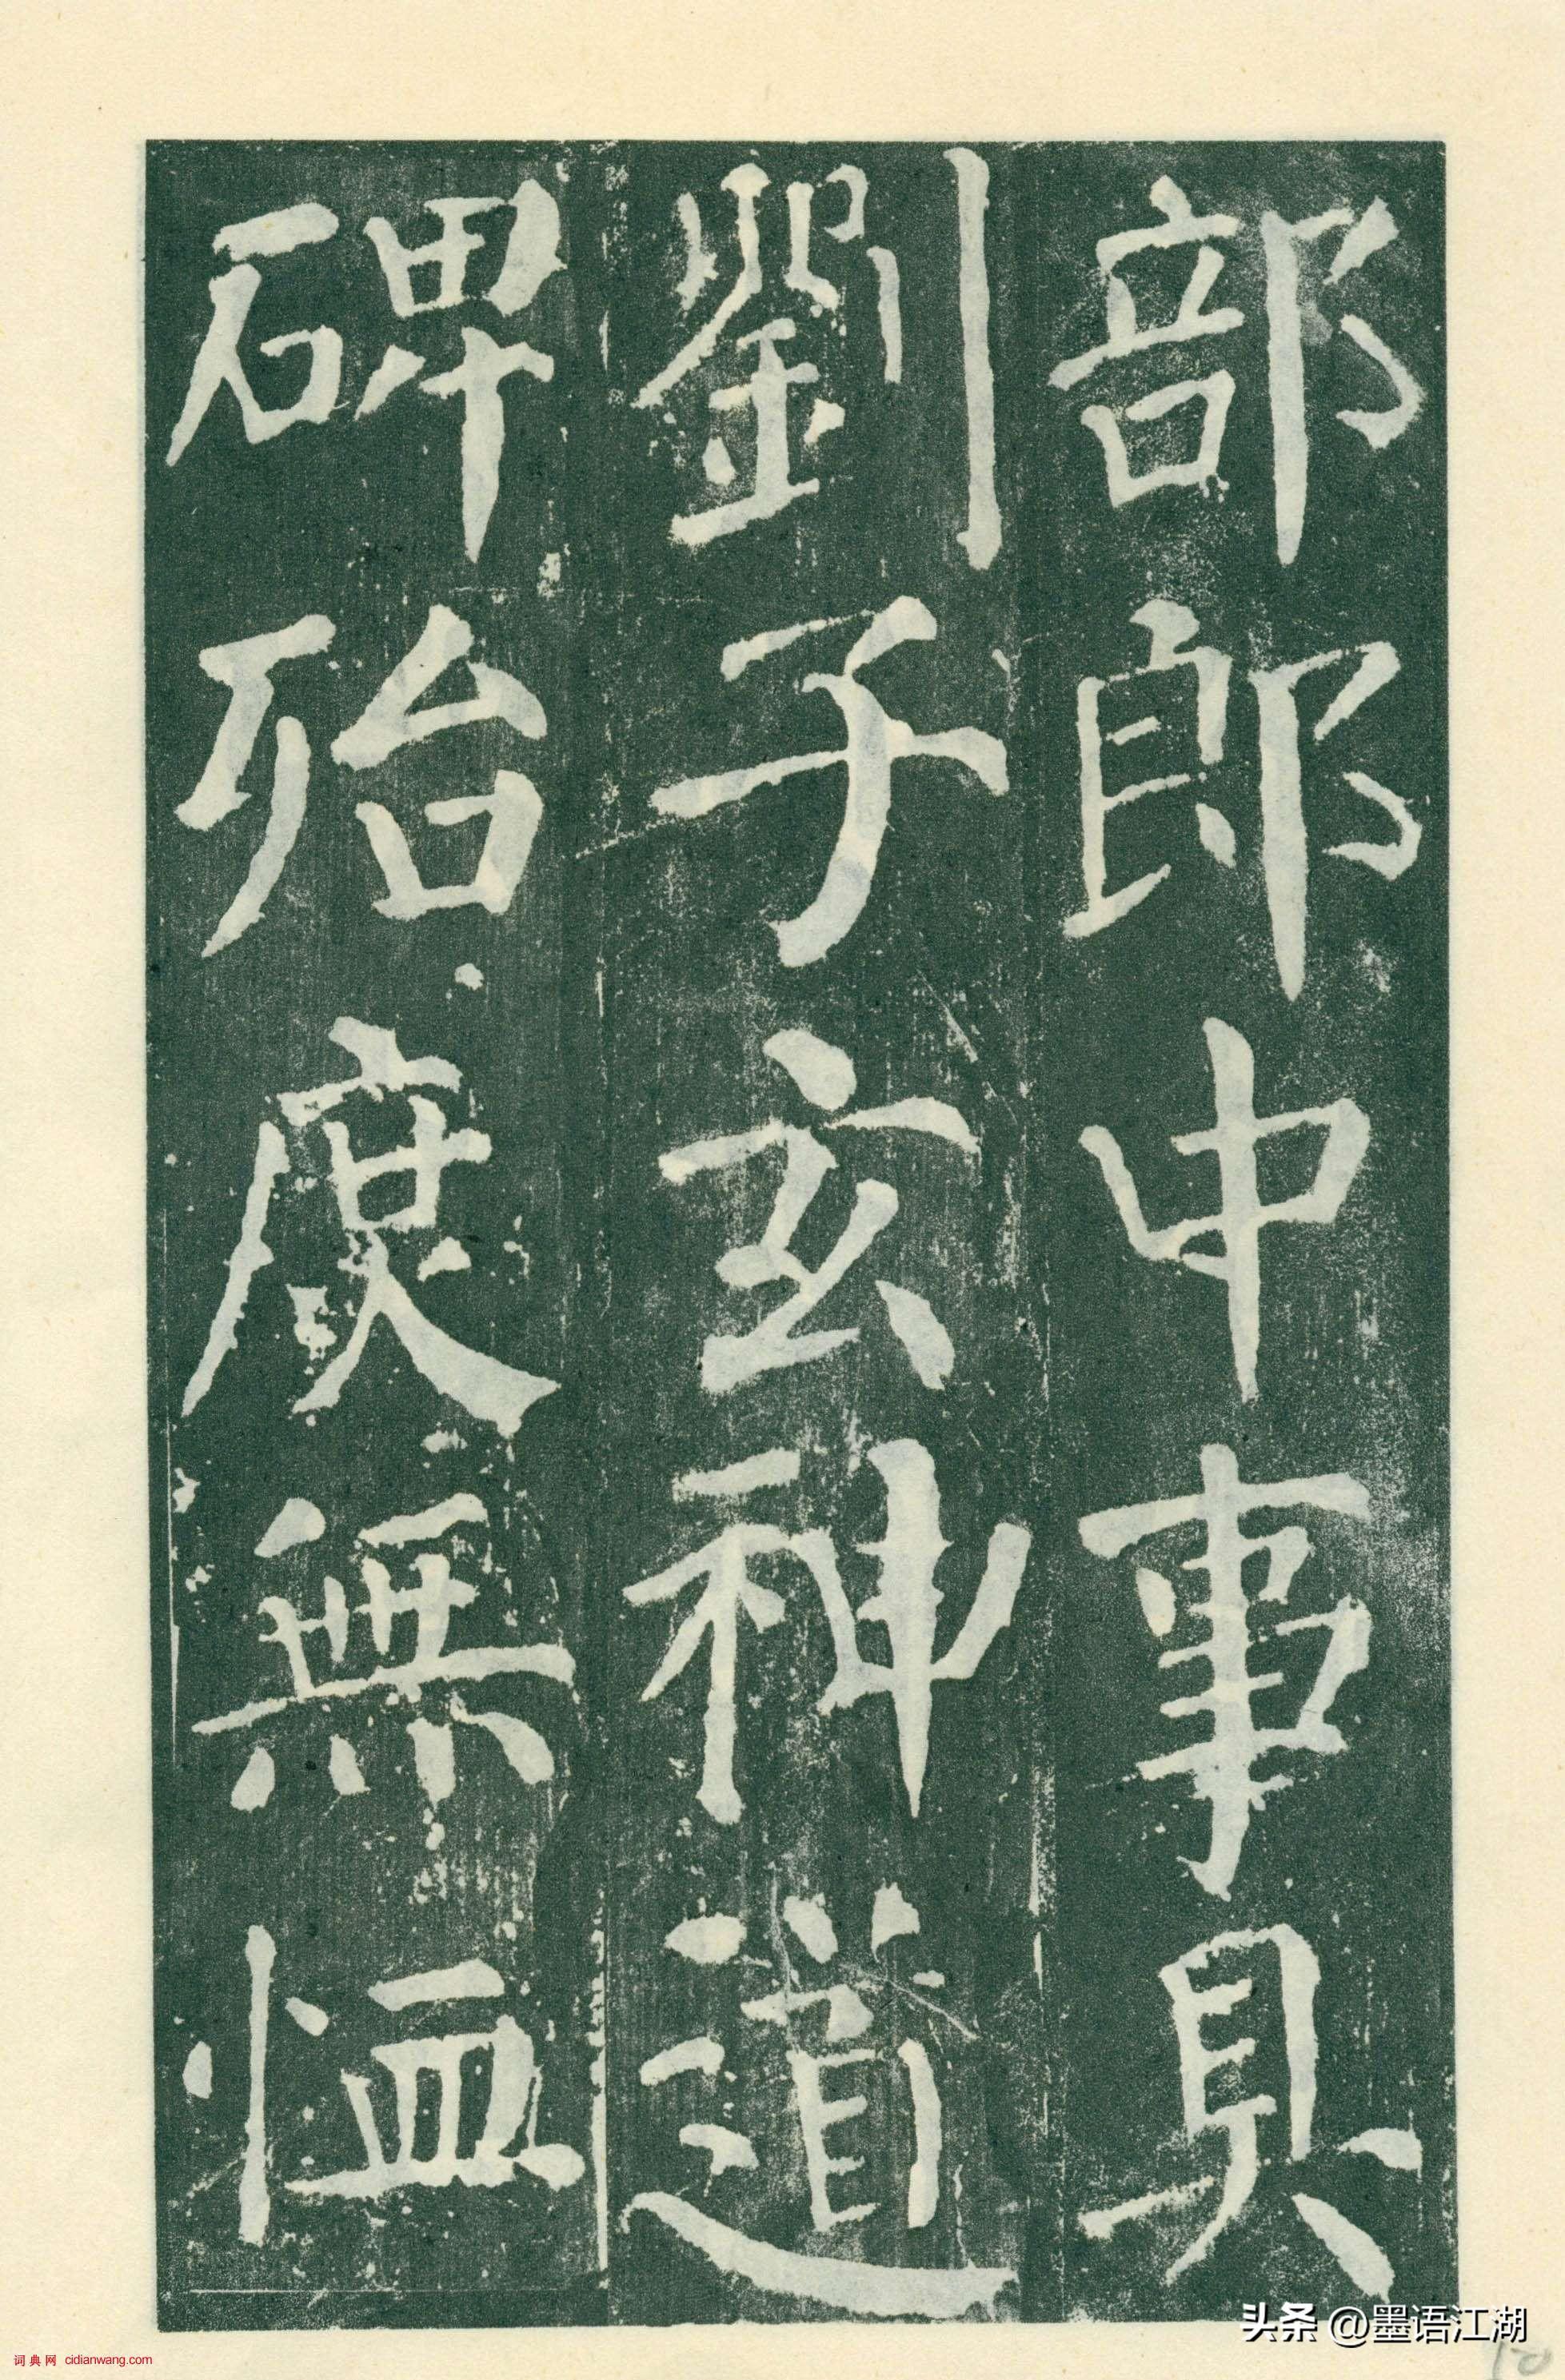 部郎中事具
劉子玄神道
碑殆庶無恤
头条 @墨语江湖
词典网 cidianwang.com
10